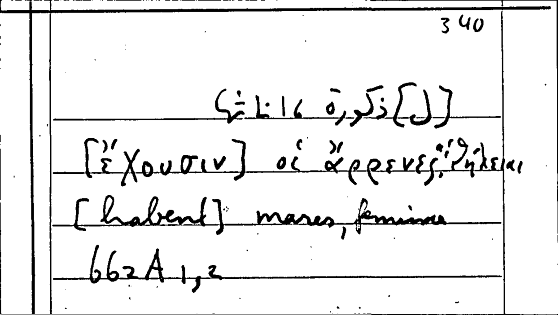 340
[ἔχουσιν] οἱ ἄρρενες, θήλειαι
[habent] mares, feminae
662 A 1,2